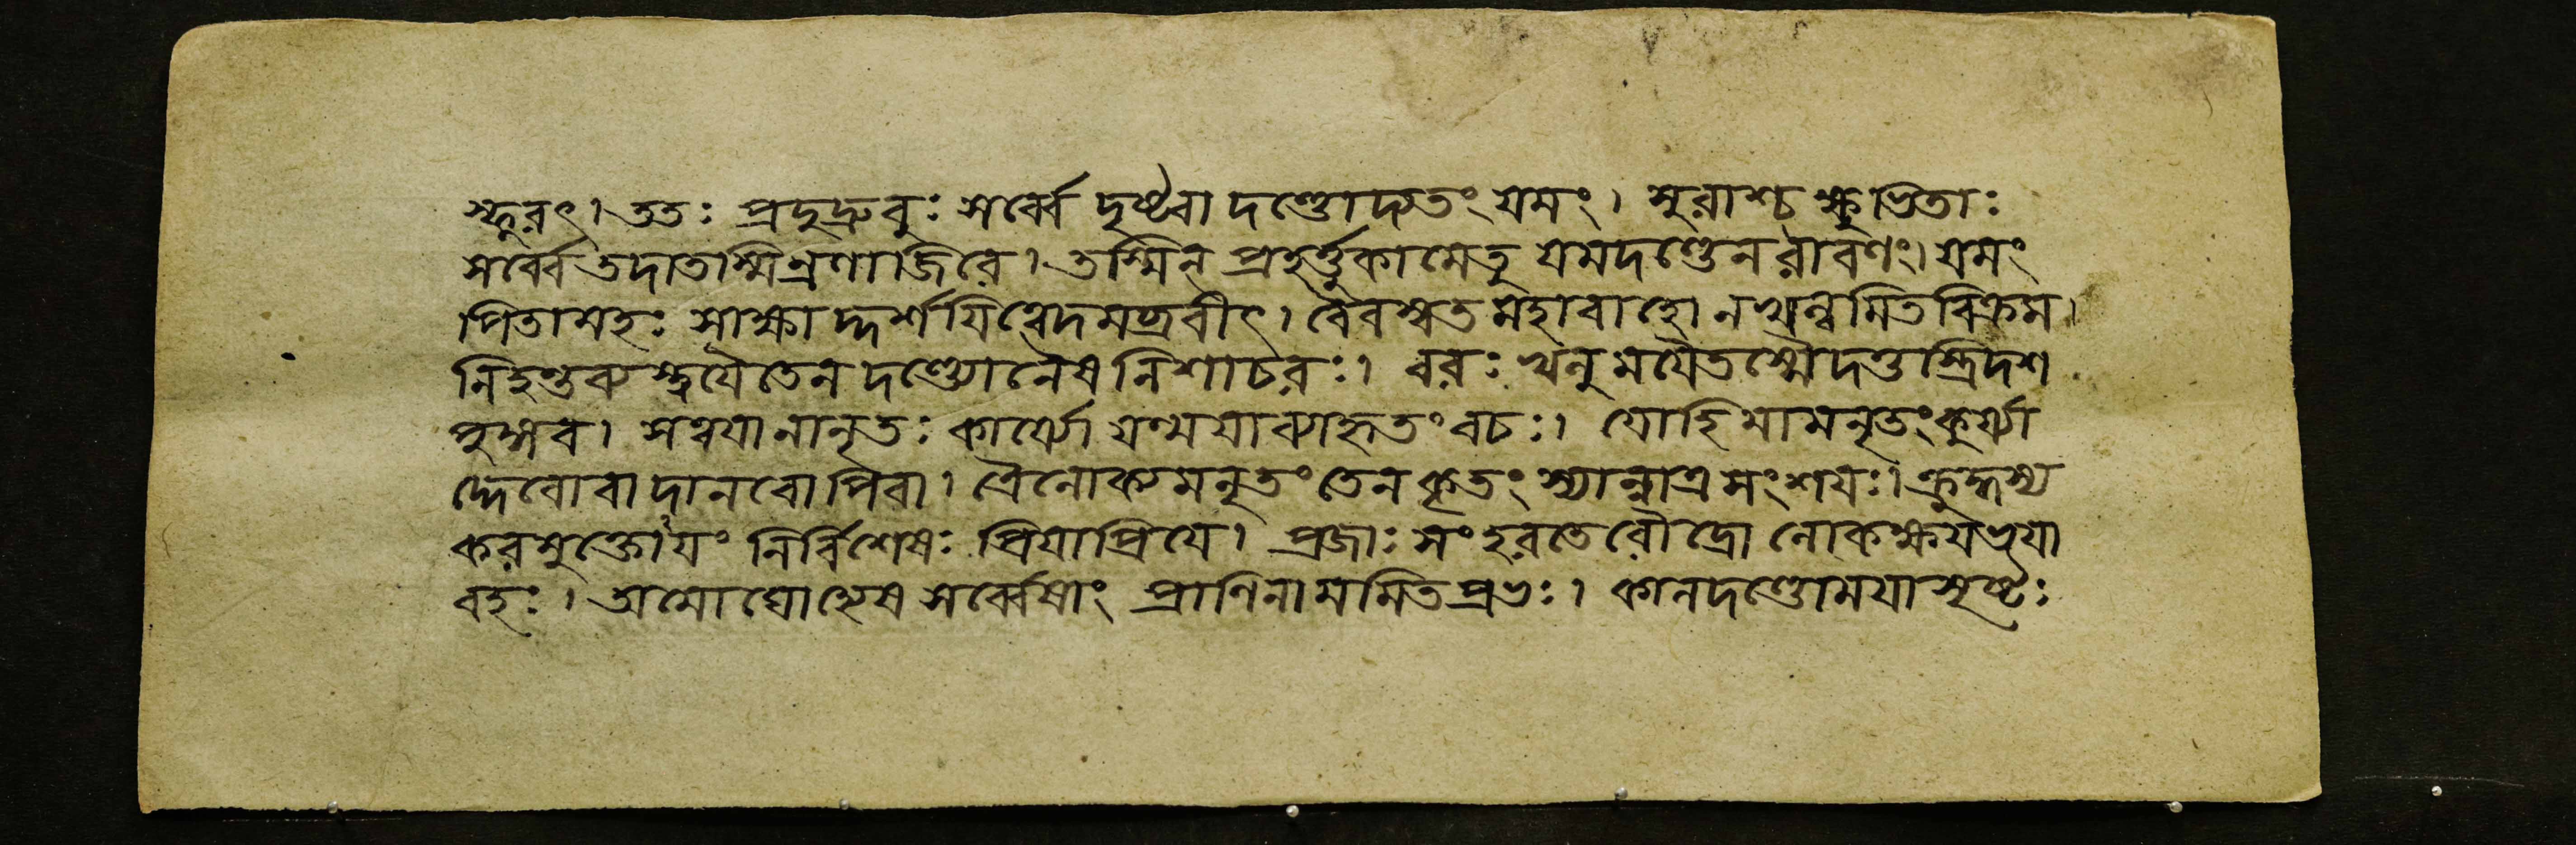 স্ফুরৎ। ততঃ প্রদুদ্রুবুঃ সর্ব্বে দৃষ্টবা দণ্ডোদ্যতং যমং। সুরাশ্চ ক্ষুভিতাঃ
সর্ব্বে তদাতস্মিন্রণাজিরে। তস্মিন্ প্রহর্ত্তুকামেতু যমদণ্ডেন রাবণং। যমং
পিতামহঃ সাক্ষাদ্দর্শয়িত্বেদমব্রবীৎ। বৈবস্বত মহাবাহো নখল্বমিতবিক্রম।
নিহন্তব্যস্ত্বয়ৈতেন দণ্ডেনৈষ নিশাচরঃ। বরঃ খলু ময়ৈতস্মৈদত্তস্ত্রিদশ
পুঙ্গব। সত্বয়ানানৃতঃ কার্য্যো যন্ময়াব্যাহৃতং বচঃ। যোহি মামনৃতংকুর্য্যা
দ্দেবোবা দানবোপিবা। ত্রৈলোক্যমনৃতং তেন কৃতং স্যান্নাত্র সংশয়ঃ। ক্রুদ্ধস্য
করমুক্তোয়ং নির্ব্বিশেষঃ প্রিয়াপ্রিয়ে। প্রজাঃ সংহরতে রৌদ্রো লোকক্ষয়ভয়া
বহঃ। অমোঘোহ্যেষ সর্ব্বেষাং প্রাণিনামমিতপ্রভঃ। কালদণ্ডোময়া সৃষ্টঃ